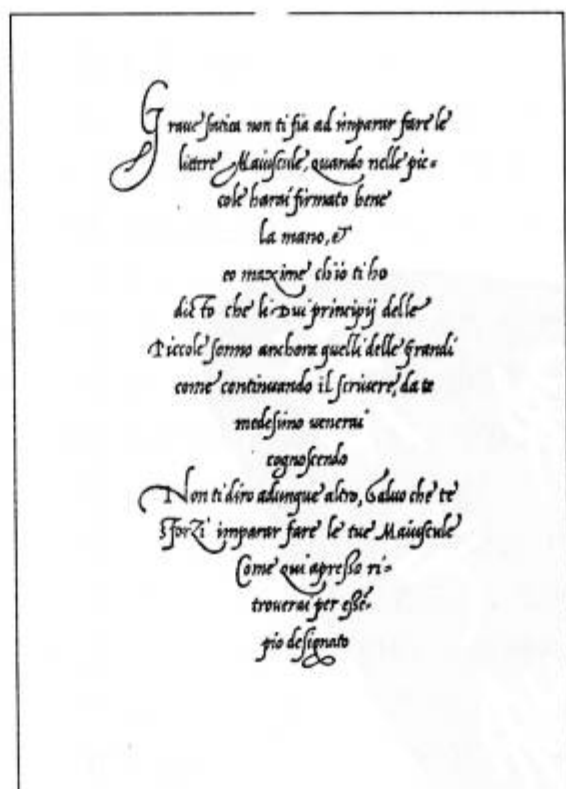 Graue fatica non ti fia ad imparar fare le
littere Maiuscule, quando nelle pic=
cole harai firmato bene
la mano, et
eo maxime chio ti ho
dicto che li Dui principij delle
Piccole sonno anchora quelli delle Grandi
come continuando il scriuere, da te
medesimo uenerai
cognoscendo
Non ti diro adunque altro, Saluo che te
sforzi imparar fare le tue Maiuscule
Come qui apresso ri=
trouerai per essē=
pio designato